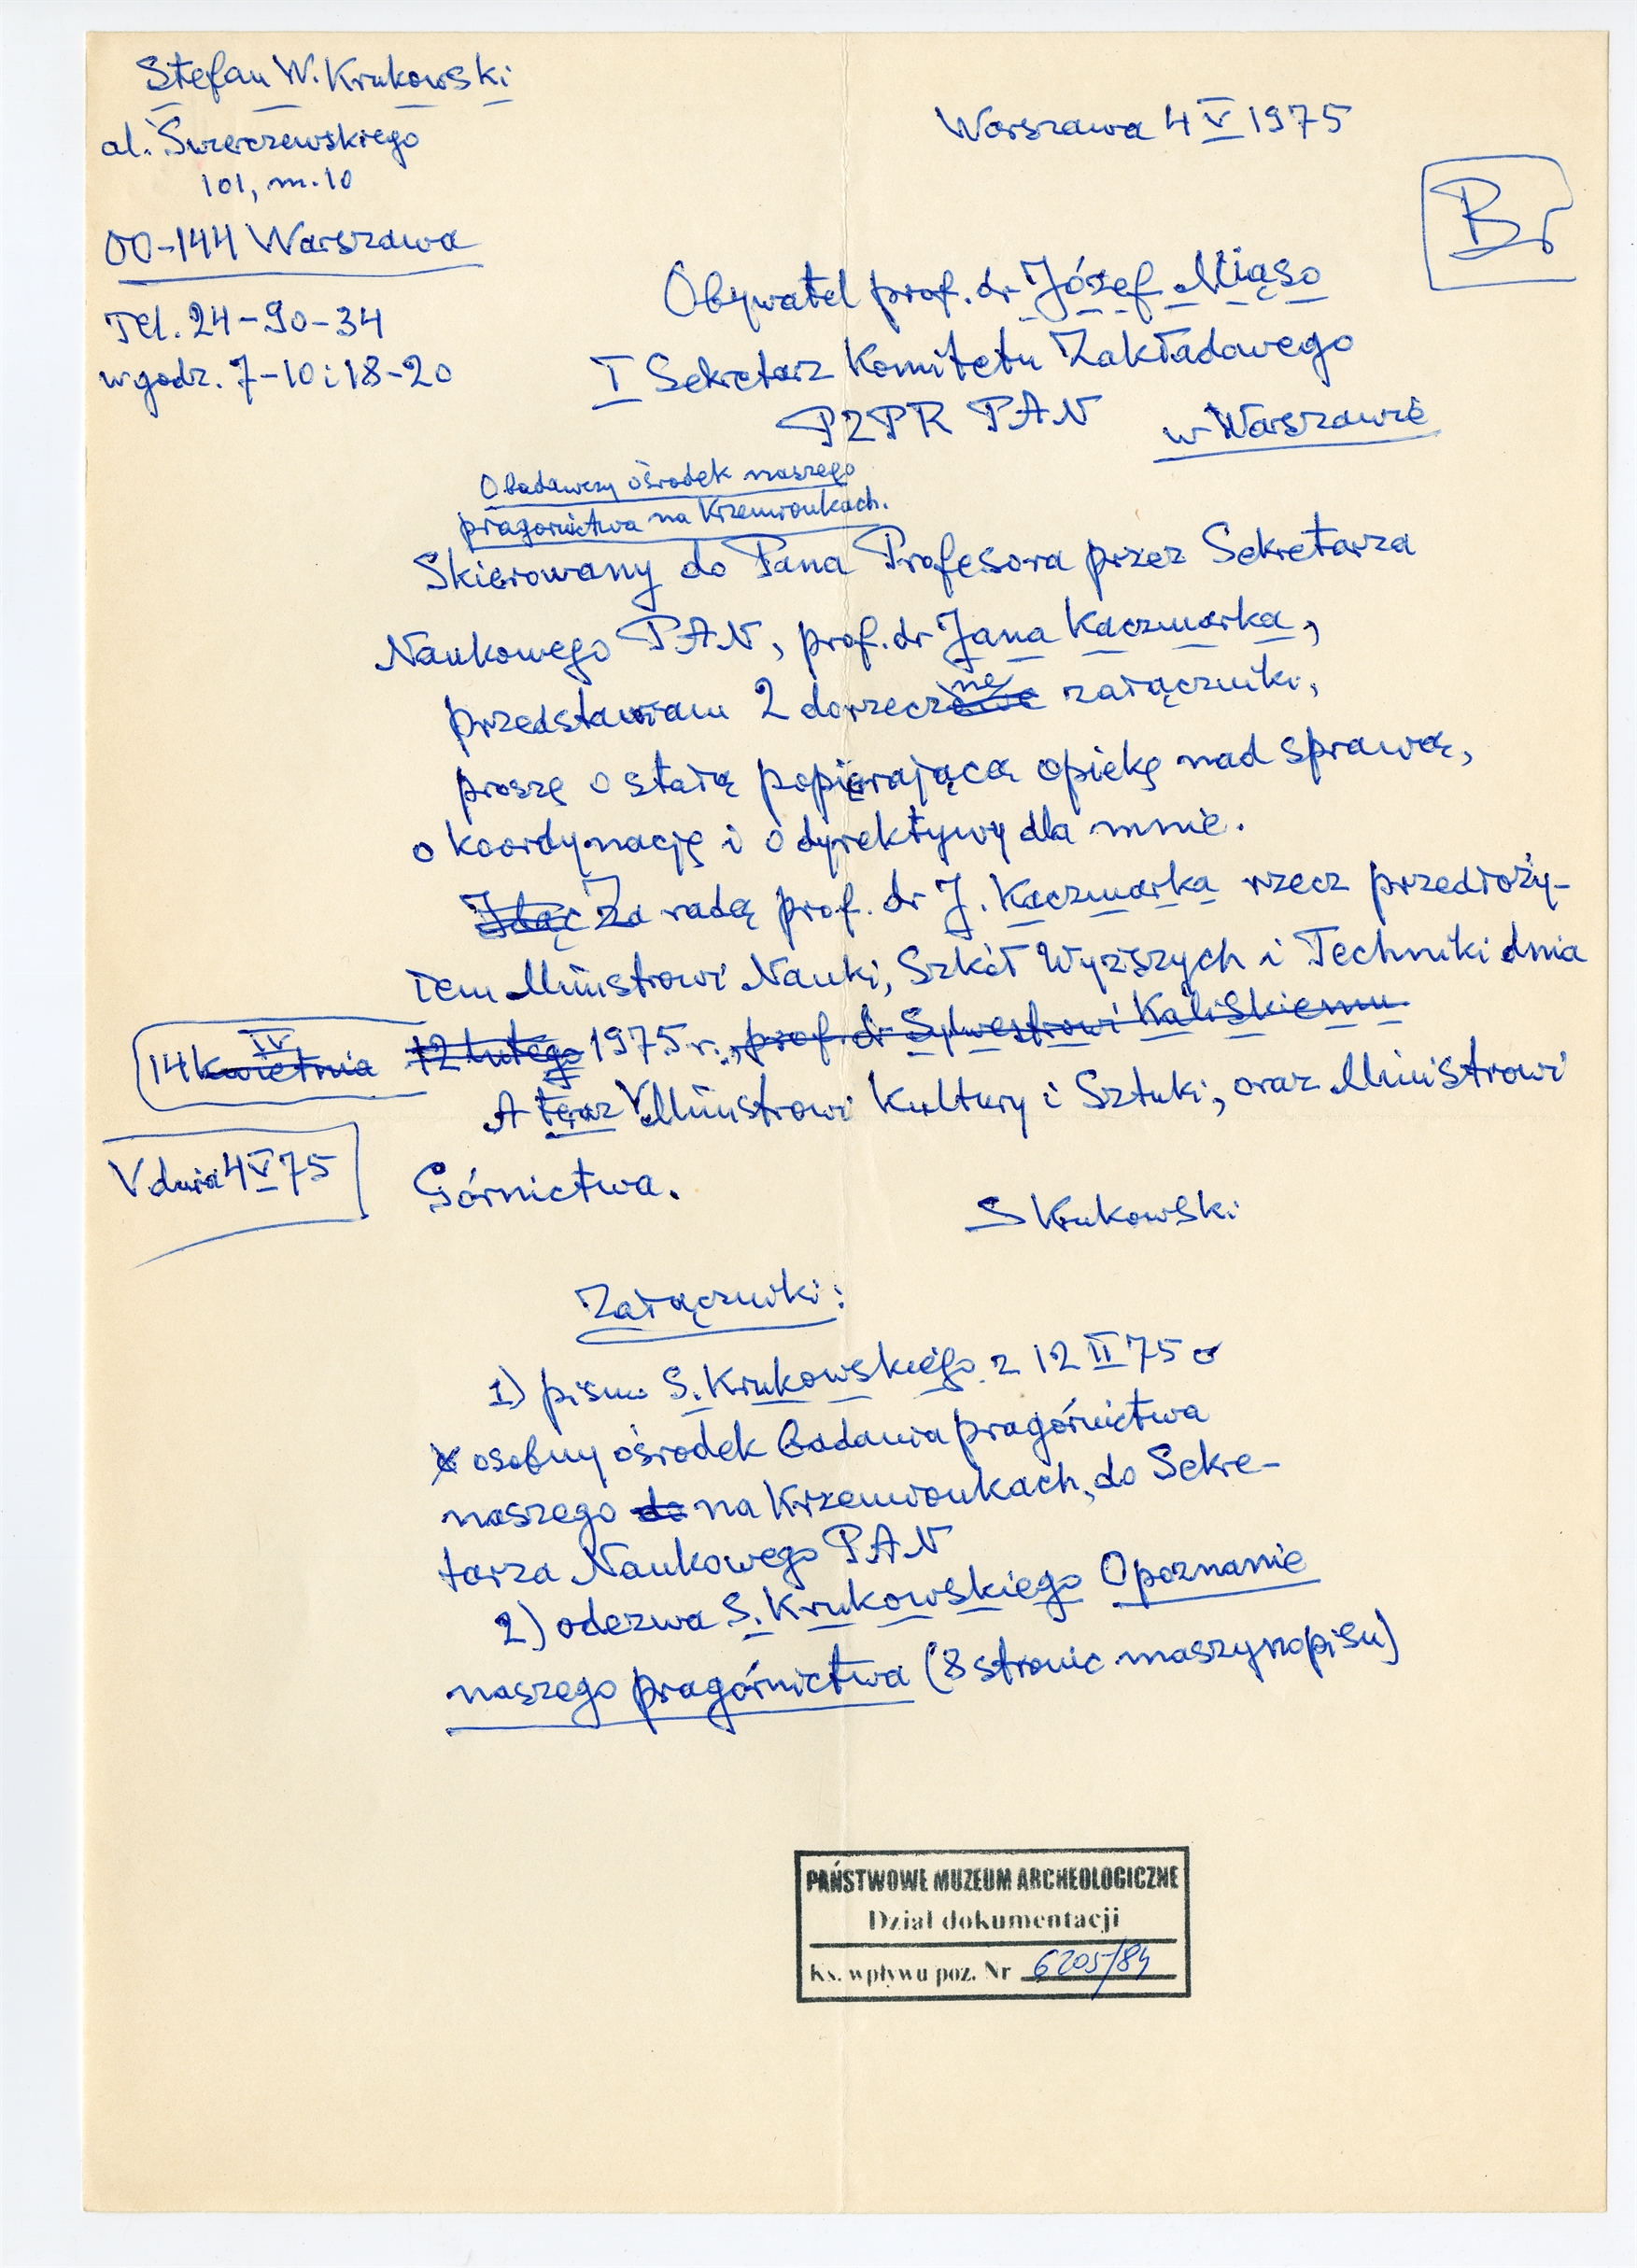 Stefan W. Krukowski
al. Świerczewskiego
101, m. 10
00-144 Warszawa
Tel. 24-90-34
w godz. 7-10 i 18-20
Warszawa 4 V 1975
Br
Obywatel prof. dr Józef Miąso
I Sekretarz Komitetu Zakładowego
PZPR PAN w Warszawie
O badawczy ośrodek naszego
pragórnictwa na Krzemionkach.
Skierowany do Pana Profesora przez Sekretarza
Naukowego PAN, prof. dr Jana Kaczmarka,
przedstawiam 2 dorzeczne załączniki,
proszę o stałą popierającą opiekę nad sprawą,
o koordynację i o dyrektywy dla mnie.
Idąc Za radą prof. dr J. Kaczmarka rzecz przedłoży-
łem Ministrowi Nauki, Szkół Wyższych i Techniki dnia
14 kwietnia IV 12 lutego 1975 r., prof. dr Sylwestrowi Kaliskiemu
A teraz V Ministrowi Kultury i Sztuki, oraz Ministrowi
V dnia 4 V 75
Górnictwa.
S Krukowski
Załączniki:
1) pismo S. Krukowskiego z 12 II 75 o
osobny ośrodek badania pragórnictwa
naszego do na Krzemionkach, do Sekre-
tarza Naukowego PAN
2) odezwa S. Krukowskiego Opoznanie
naszego pragórnictwa (8 stronic maszynopisu)
PAŃSTWOWE MUZEUM ARCHEOLOGICZNE
Dział dokumentacji
Ks. wpływu poz. Nr 6205/84